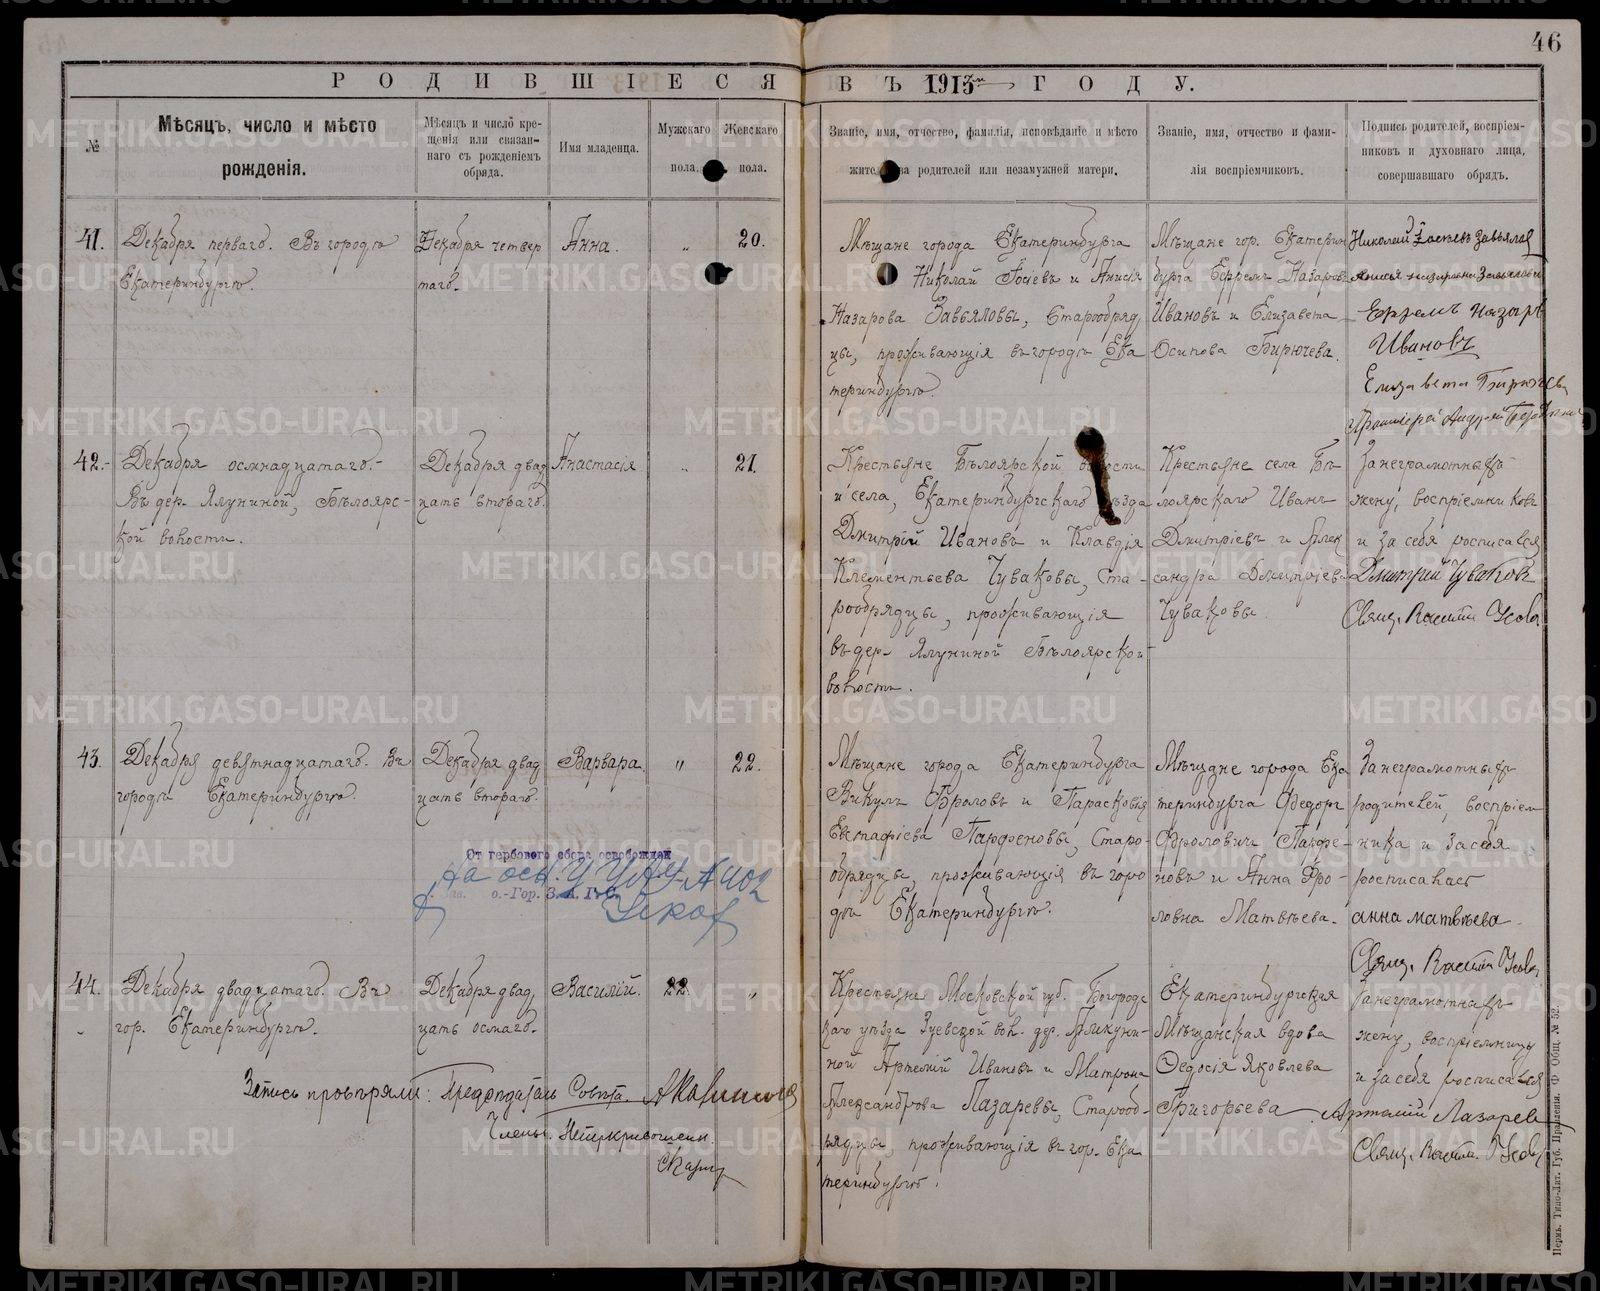 46
РОДИВШІЕСЯ ВЪ 1913 ГОДУ.
№
Мѣсяцъ, число и мѣсто
рожденія.
Мѣсяцъ и число кре-
щенія или связан-
наго съ рожденіемъ
обряда.
Имя младенца.
Мужскаго
пола.
Женскаго
пола.
Званіе, имя, отчество, фамилія, исповѣданіе и мѣсто
жительства родителей или незамужней матери.
Званіе, имя, отчество и фами-
лія воспріемчиковъ.
Подпись родителей, воспріем-
никовъ и духовнаго лица,
совершавшаго обрядъ.
41.
Декабря перваго. Въ городѣ
Екатеринбургѣ.
Декабря четвер
таго.
Анна.
"
20.
Мѣщане города Екатеринбурга
Николай Іосіевъ и Анисія
Назарова Завьяловы, Старообряд
цы, проживающія въ городѣ Ека
теринбургѣ.
Мѣщане гор. Екатерин
бурга Ефремъ Назаровъ
Ивановъ и Елизавета
Осипова Бирючева.
Николай Завьялов
Ефремъ Назаръ
Ивановъ
Елизавета Бирючева
42.
Декабря осмнадцатаго.
Въ дер. Ялуниной, Бѣлоярс-
кой волости.
Декабря двад
цать втораго.
Анастасія
"
21.
Крестьяне Бѣлоярской волости
и села, Екатеринбургскаго уѣзда
Дмитрій Ивановъ и Клавдія
Клементьева Чуваковы, Ста-
рообрядцы, проживающія
въ дер. Ялуниной Бѣлоярской
волости.
Крестьяне села Бѣ
лоярскаго Иванъ
Дмитріевъ и Алек
сандра Дмитріева
Чуваковы
За неграмотныхъ
жену, воспріемниковъ
и за себя росписался
Дмитрий Чуваковъ
Свящ. Василій Усовъ
43.
Декабря девятнадцатаго. Въ
городѣ Екатеринбургѣ.
Декабря двад
цать втораго.
Варвара
"
22.
Мѣщане города Екатеринбурга
Викулъ Фроловъ и Парасковія
Евстафіева Парфеновы, Старо-
обрядцы, проживающія въ горо
дѣ Екатеринбургѣ.
Мѣщане города Ека
теринбурга Федоръ
Фроловичъ Парфе-
новъ и Анна Фро-
ловна Матвѣева.
За неграмотныхъ
родителей, воспріем
ника и за себя
росписалась
анна матвѣева
Свящ. Василій Усовъ
От гербового сбора освобожден
44.
Декабря двадцатаго. Въ
гор. Екатеринбургѣ.
Декабря двад
цать осмаго.
Василій.
22.
"
Крестьяне Московской губ. Богородс
каго уѣзда Зуевской вол. дер.
Артемій Ивановъ и Матрона
Александрова Лазаревы, Старооб-
рядцы, проживающія въ гор. Ека
теринбургѣ.
Екатеринбургская
Мѣщанская вдова
Ѳедосія Яковлева
Григорьева
За неграмотныхъ
жену, воспріемницу
и за себя росписался
Артемій Лазарев
Свящ. Васил. Усовъ
Запись провѣряли: Предсѣдатель Совѣта.
Члены.
Пермь. Типо-Лит. Губ. Правленія. Ф. Общ. № 52.
METRIKI.GASO-URAL.RU